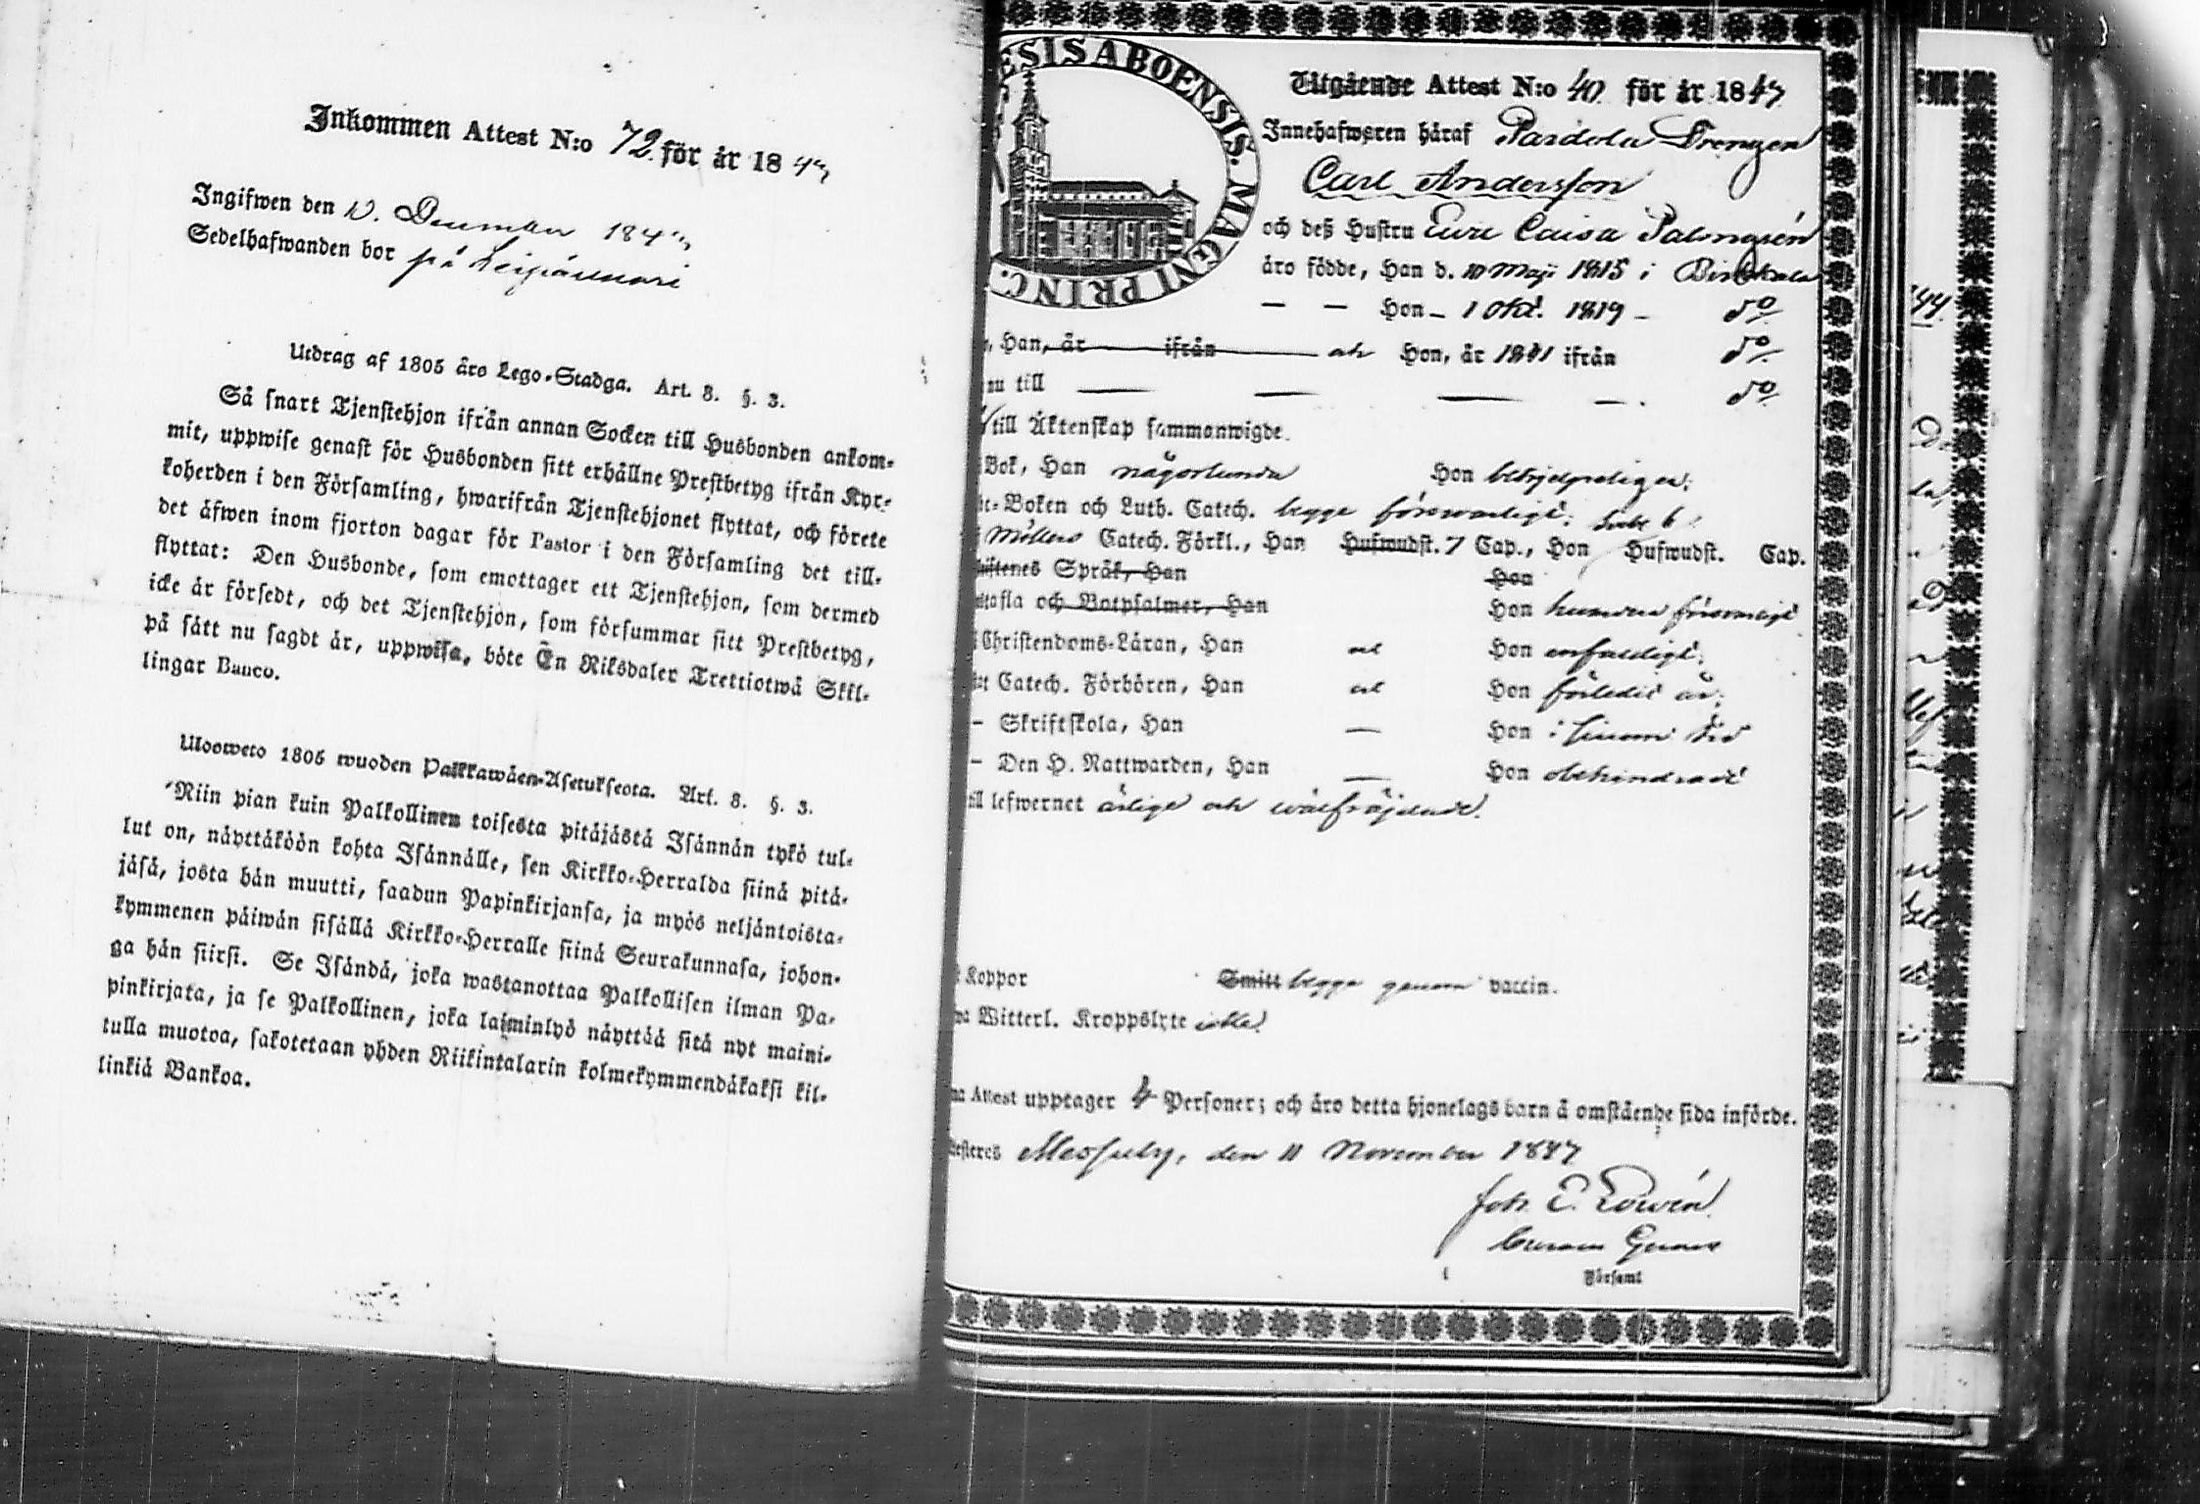 Inkommen Attest N:o 72. för år 1847
Ingifwen den 10. December 1847
Sedelhafwanden bor på
Utdrag af 1805 års Lego-Stadga. Art. 8. §. 3.
Så snart Tjenstehjon ifrån annan Socken till Husbonden ankom-
mit, uppwise genast för Husbonden sitt erhållne Prestbetyg ifrån Kyr-
koherden i den Församling, hwarifrån Tjenstehjonet flyttat, och förete
det äfwen inom fjorton dagar för Pastor i den Församling det till-
flyttat: Den Husbonde, som emottager ett Tjenstehjon, som dermed
icke är försedt, och det Tjenstehjon, som försummar sitt Prestbetyg,
på sätt nu sagdt är, uppwisa, böte En Riksdaler Trettiotwå Skil-
lingar Banco.
Ulosweto 1805 wuoden Palkkawäen-Asetuksesta. Art. 8. §. 3.
Niin pian kuin Palkollinen toisesta pitäjästä Isännän tykö tul-
lut on, näyttäköön kohta Isännälle, sen Kirkko-Herralda siinä pitä-
jäsä, josta hän muutti, saadun Papinkirjansa, ja myös neljäntoista-
kymmenen päiwän sisällä Kirkko-Herralle siinä Seurakunnasa, johon-
ga hän siirsi. Se Isändä, joka wastanottaa Palkollisen ilman Pa-
pinkirjata, ja se Palkollinen, joka laiminlyö näyttää sitä nyt maini-
tulla muotoa, sakotetaan yhden Riikintalarin kolmekymmendäkaksi kil-
linkiä Bankoa.
ESIS ABOENSIS. MAGNI PRINC.
Utgående Attest N:o 40. för år 1847
Innehafwaren häraf Pardola Drengen
Carl Andersson
och deß Hustru Eva Caisa Palmgrén
äro födde, Han d. 10 Maji 1815 i Birkkala
— — Hon – 1 Okt. 1819 – do
, Han, är ifrån och Hon, år 1841 ifrån do
nu till — — — — do
till Äktenskap sammanwigde.
Bok, Han någorlunda Hon
-Boken och Luth. Catech. begge försvarligt.
Möllers Catech. Förkl., Han Hufwudst. 7 Cap., Hon Hufwudst. Cap.
Språk, Han Hon
tafla och Botpsalmer, Han Hon
Christendoms-Läran, Han och Hon enfaldigt.
Catech. Förhören, Han och Hon förledit år.
– Skriftskola, Han — Hon i sinom tid
– Den H. Nattwarden, Han — Hon obehindradt
till lefwernet ärlige och wälfräjdade.
Koppor Smitt begge genom vaccin.
Witterl. Kroppslyte icke.
Attest upptager 4 Personer; och äro detta hjonelags barn å omstående sida införde.
Messuby, den 11 November 1847
Joh. E.
Församl